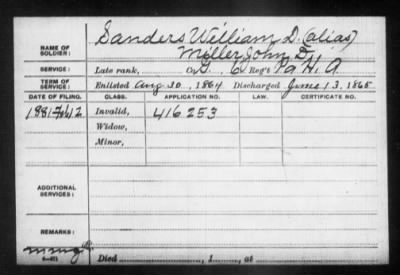 Sanders William D. (alias)
NAME OF SOLDIER:
Miller John D.
SERVICE: Late rank, Co. G, 6 Reg't Pa H. A.
TERM OF SERVICE: Enlisted Aug 30, 1864 Discharged June 13, 1865
DATE OF FILING. CLASS. APPLICATION NO. LAW. CERTIFICATE NO.
1881 Feb 12 Invalid, 416253
Widow,
Minor,
ADDITIONAL SERVICES:
REMARKS:
Died , 1 , at